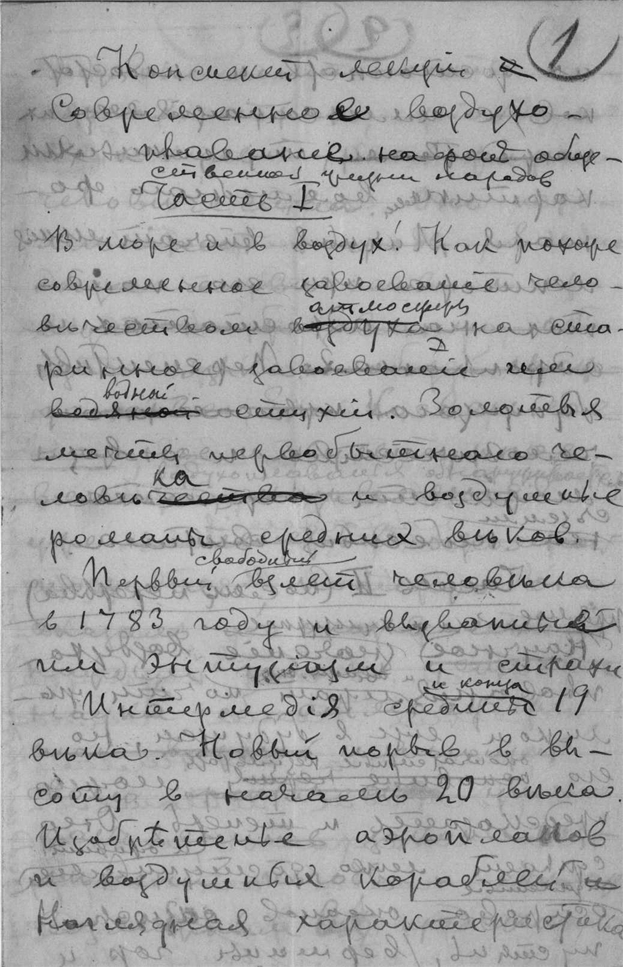 1
Конспект лекціи
Современное воздухо-
плаваніе на фонѣ обще-
ственной жизни народов
Часть I
В море и в воздух! Как похоже
современное завоеваніе чело-
атмосферы
вѣчеством воздуха на ста-
ринное завоеваніе им
водный
водяной стихіи. Золотыя
мечты первобытнаго че-
ка
ловѣчества и воздушные
романы средних вѣков.
свободный
Первый взлет человѣка
в 1783 году и вызванные
им энтузіазм и страхи
и конца
Интермедія средины 19
вѣка. Новый порыв в вы-
соту в началѣ 20 вѣка.
Изобрѣтенье аэропланов
и воздушных кораблей и
Наглядная характеристика